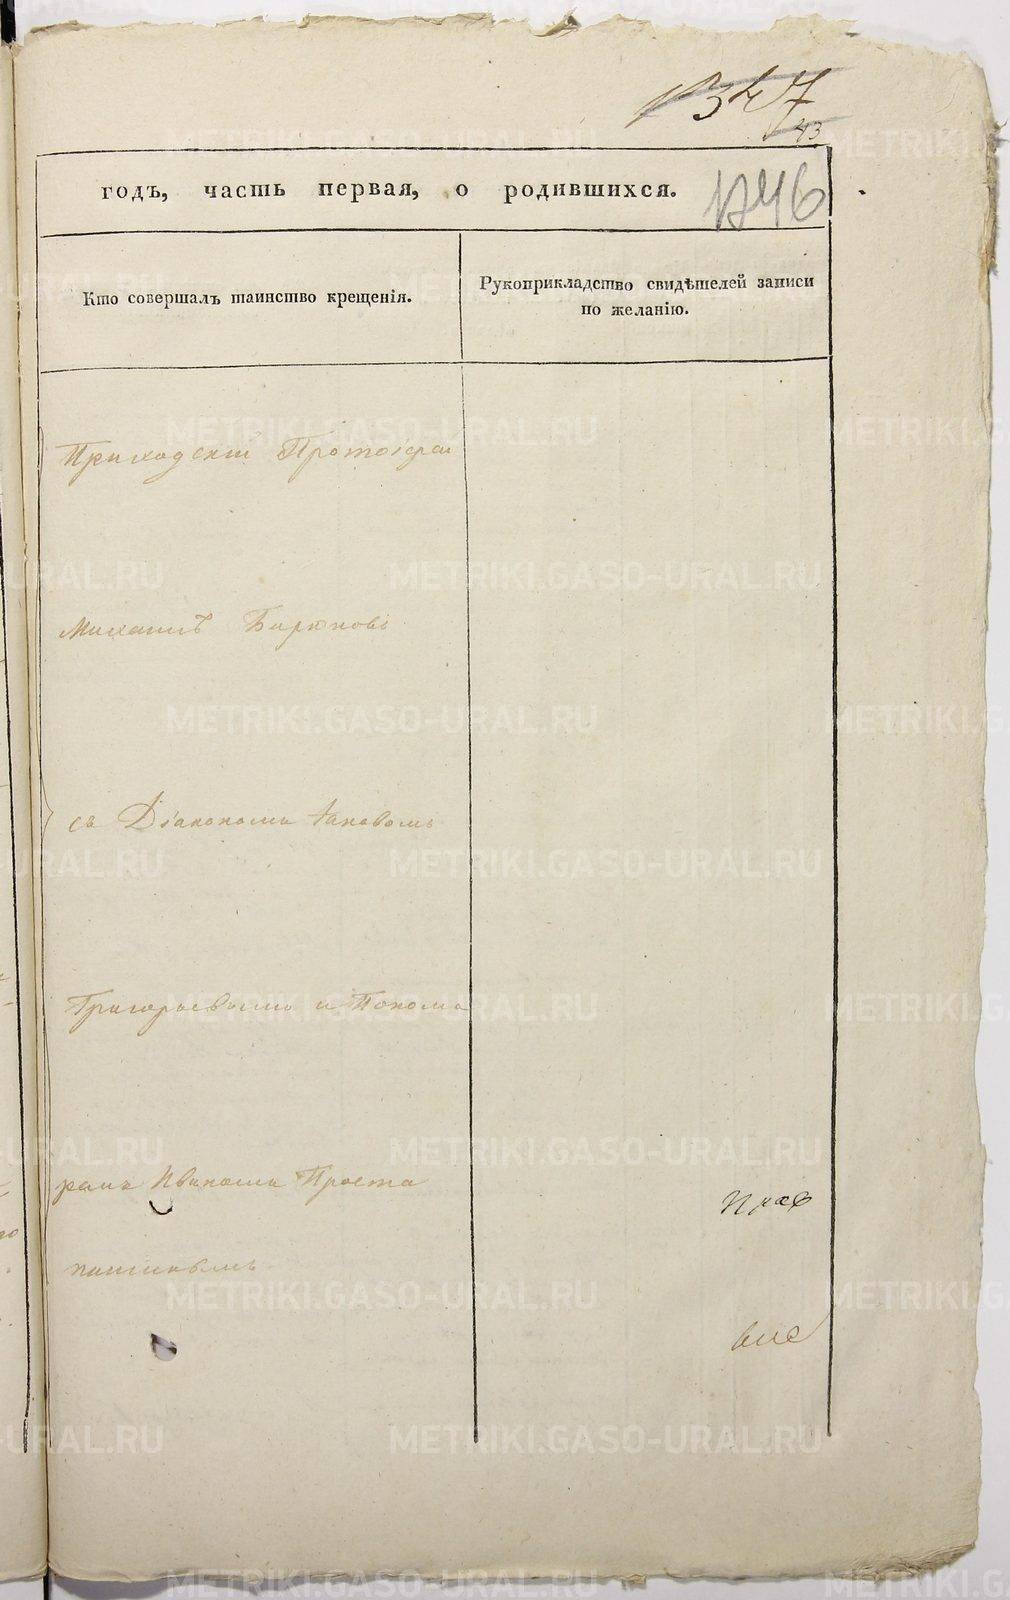 1347
43
годъ, часть первая, о родившихся. 1746
Кто совершалъ таинство крещенія.
Рукоприкладство свидѣтелей записи по желанію.
Приходскій Протоіерей
Михаилъ Бирюковъ
съ Діакономъ Іаковомъ
Григорьевымъ и Понома
ремъ Иваномъ Проста
INLINE